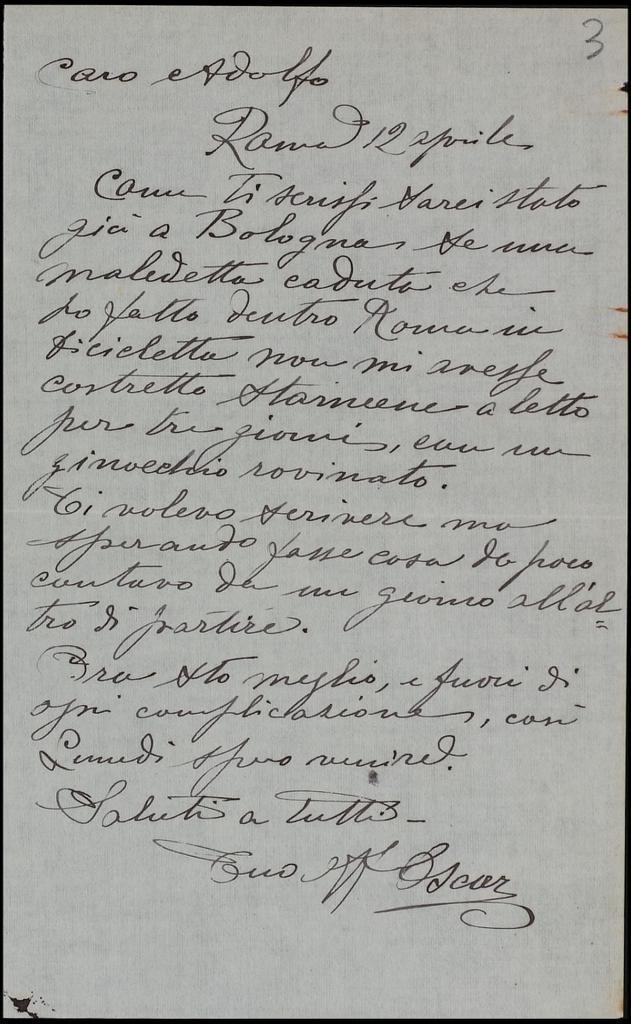 3
Caro Adolfo
Roma 12 aprile
Come ti scrissi sarei stato
già a Bologna se una
maledetta caduta che
ho fatto dentro Roma in
bicicletta non mi avesse
costretto starmene a letto
per tre giorni, con un
ginocchio rovinato.
Ti volevo scrivere ma
sperando fosse cosa da poco
contavo da un giorno all'al=
tro di partire.
Ora sto meglio, e fuori di
ogni complicazione, così
Lunedì spero venire.
Saluti a tutti -
Tuo aff Oscar